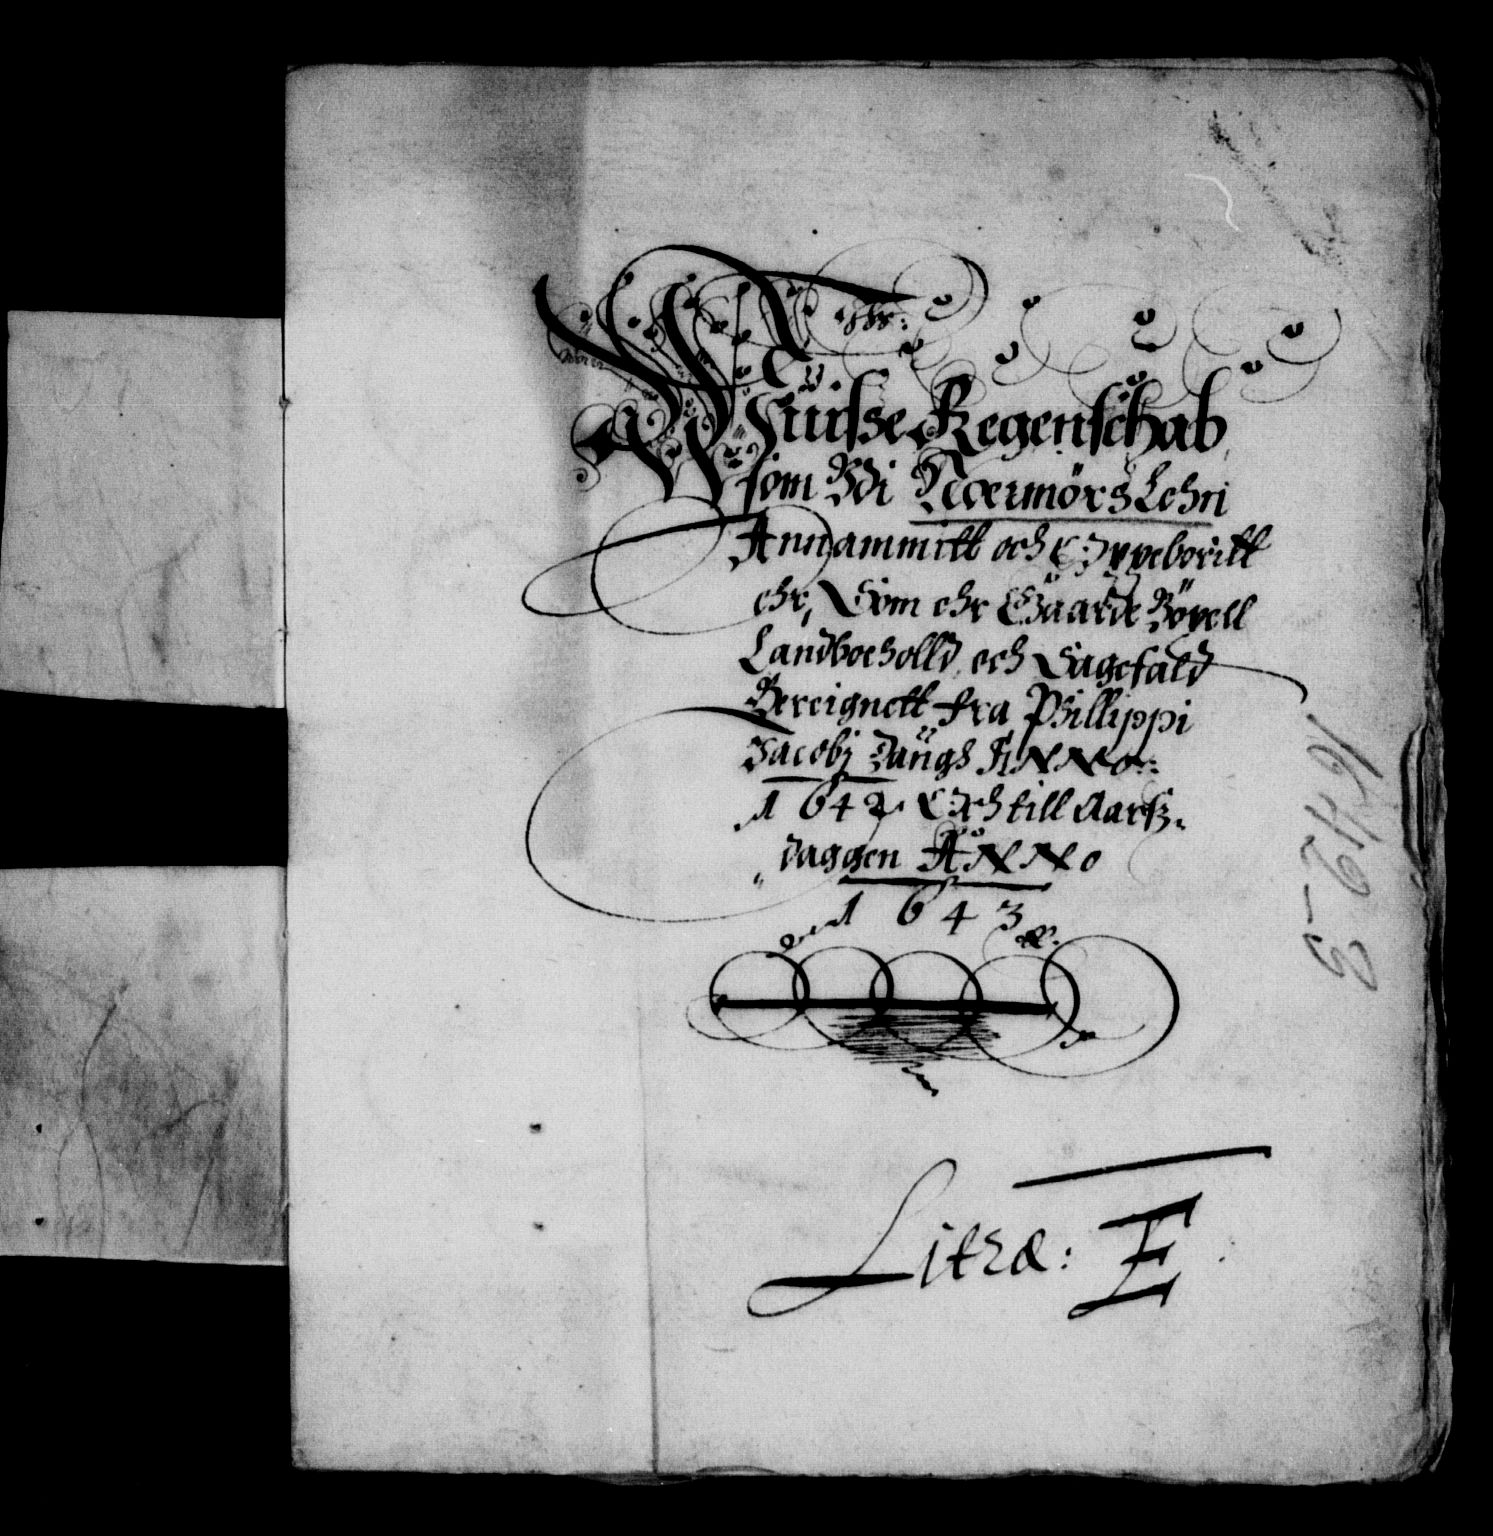 Wüisse Regenschab
som Wdi Noermörs Lehn
Annammitt och Oppeboritt
ehr, Som ehr Gaarde Böxell
Landboeholld, och Sagefald
Bereignett fra Phillippi
Jacobj Daugs ANNO:
1642. Och till Aarß
daggen ANNO
1643
Litræ: E
1642-3